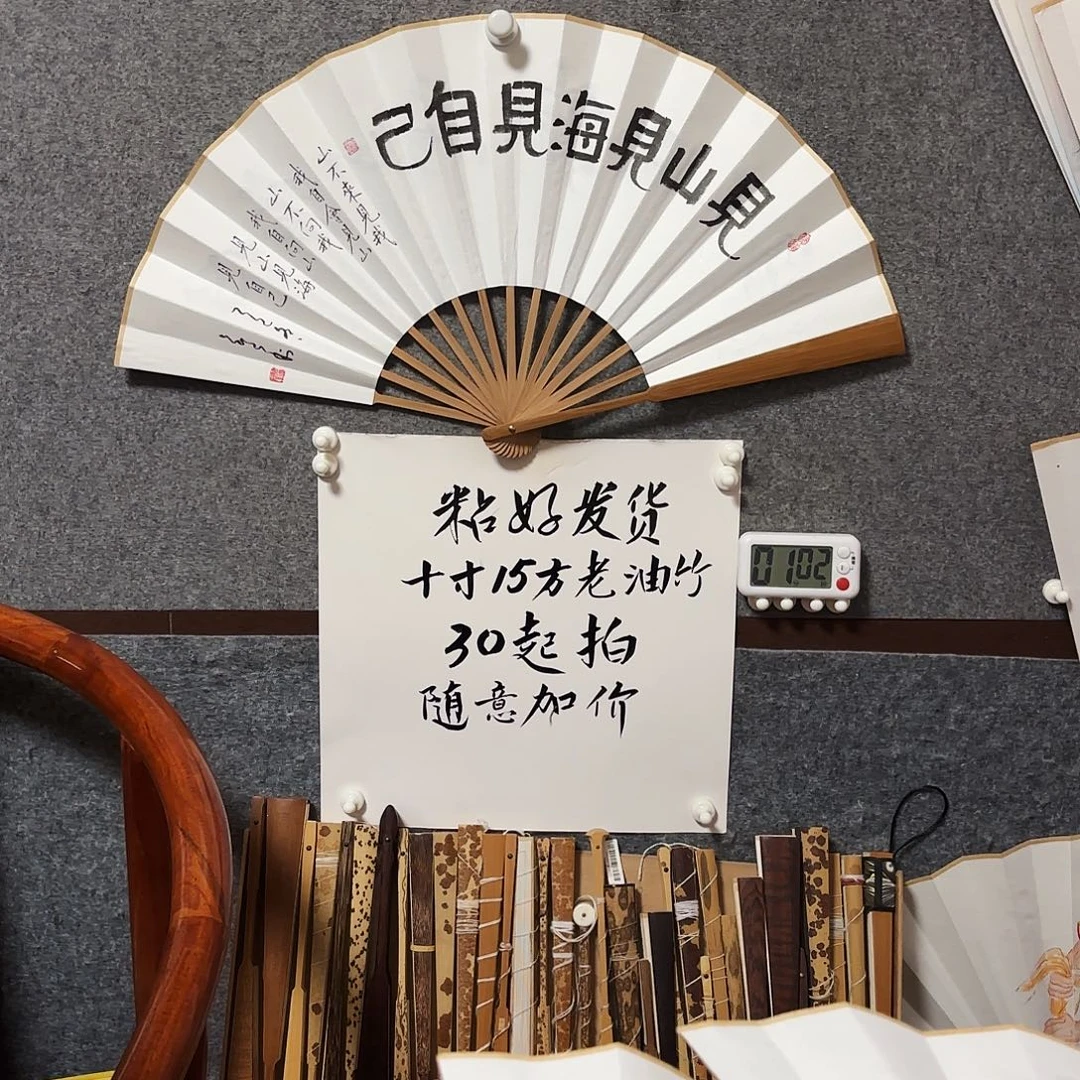 見山見海見自己
山不来見我
我自會見山
山不向我
我自向山
見山見海
見自己
粘好发货
十寸15方老油竹
30起拍
随意加价
01:02